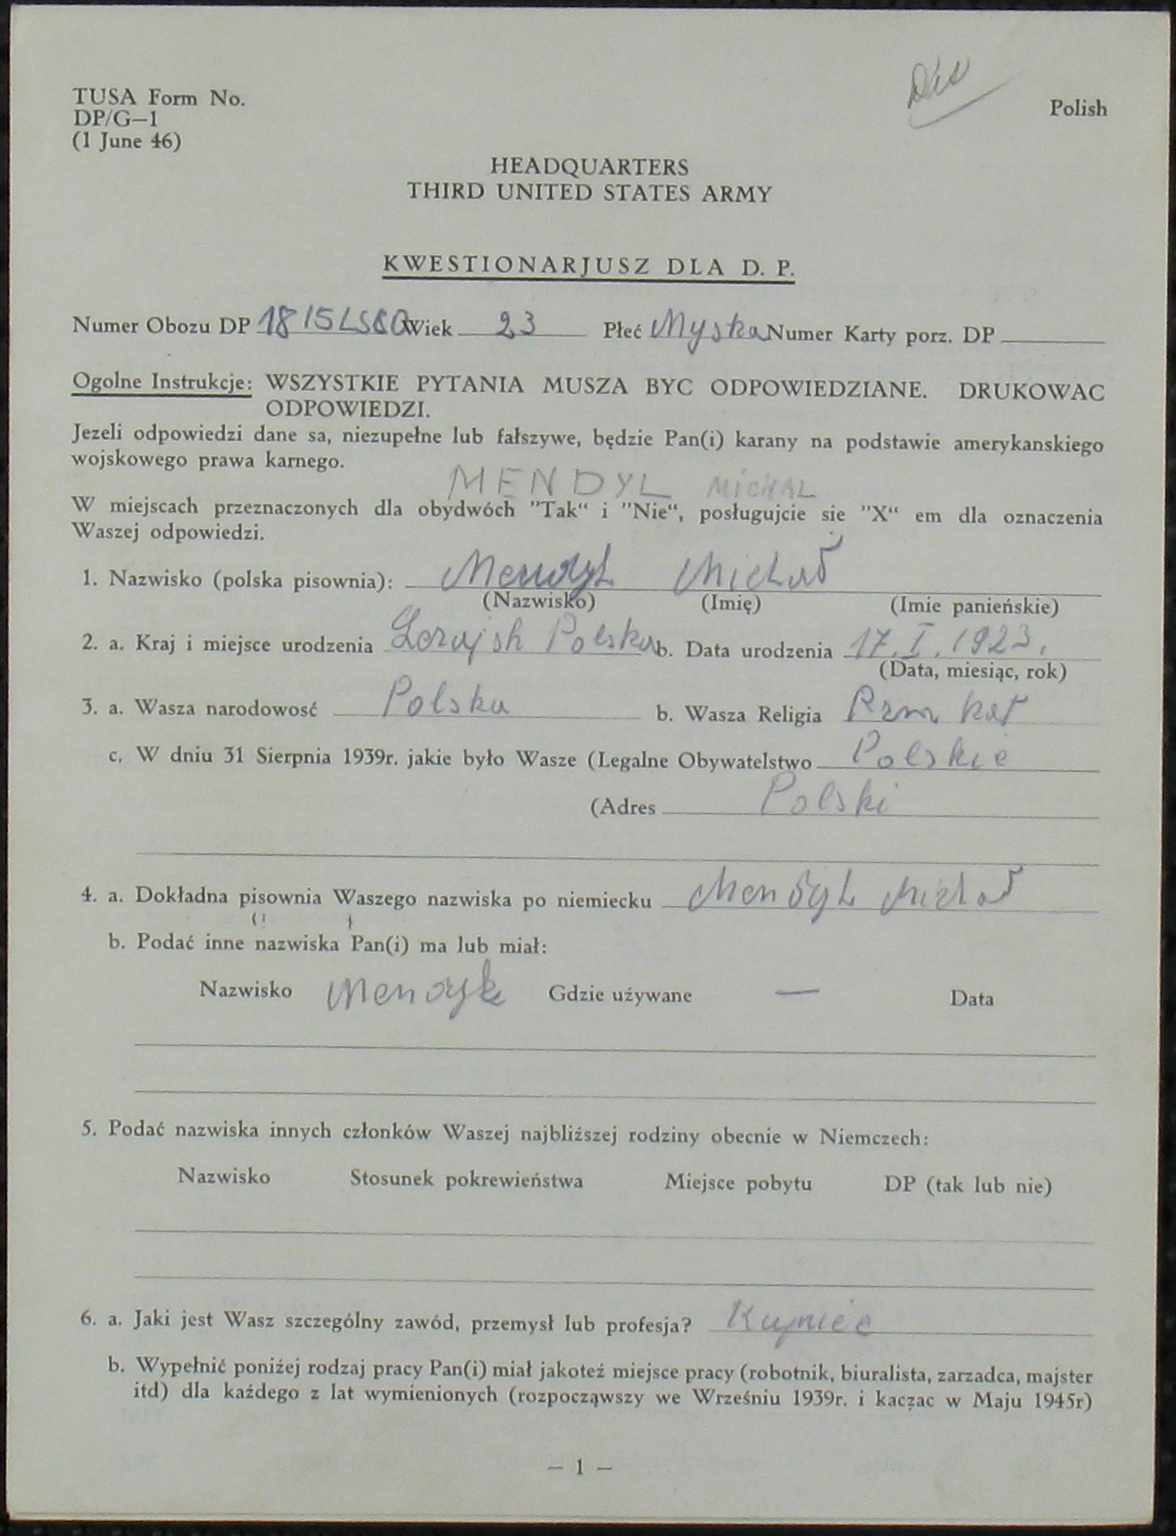 TUSA Form No.
DP/G—1
(1 June 46)
Polish
HEADQUARTERS
THIRD UNITED STATES ARMY
KWESTIONARJUSZ DLA D. P.
Numer Obozu DP Wiek 23 Płeć Męska Numer Karty porz. DP
Ogolne Instrukcje: WSZYSTKIE PYTANIA MUSZA BYC ODPOWIEDZIANE. DRUKOWAC
ODPOWIEDZI.
Jezeli odpowiedzi dane sa, niezupełne lub fałszywe, będzie Pan(i) karany na podstawie amerykanskiego
wojskowego prawa karnego.
MENDYL MICHAL
W miejscach przeznaczonych dla obydwóch "Tak" i "Nie", posługujcie sie "X" em dla oznaczenia
Waszej odpowiedzi.
1. Nazwisko (polska pisownia): Mendyl Michał
(Nazwisko) (Imię) (Imie panieńskie)
2. a. Kraj i miejsce urodzenia Polska b. Data urodzenia 17. I. 1923.
(Data, miesiąc, rok)
3. a. Wasza narodowosć Polska b. Wasza Religia Rzm kat
c. W dniu 31 Sierpnia 1939r. jakie było Wasze (Legalne Obywatelstwo Polskie
(Adres Polski
4. a. Dokładna pisownia Waszego nazwiska po niemiecku Mendyl Michał
b. Podać inne nazwiska Pan(i) ma lub miał:
Nazwisko Gdzie używane — Data
5. Podać nazwiska innych członków Waszej najbliższej rodziny obecnie w Niemczech:
Nazwisko Stosunek pokrewieństwa Miejsce pobytu DP (tak lub nie)
6. a. Jaki jest Wasz szczególny zawód, przemysł lub profesja? Kupiec
b. Wypełnić poniżej rodzaj pracy Pan(i) miał jakoteż miejsce pracy (robotnik, biuralista, zarzadca, majster
itd) dla każdego z lat wymienionych (rozpocząwszy we Wrześniu 1939r. i kacząc w Maju 1945r)
— 1 —